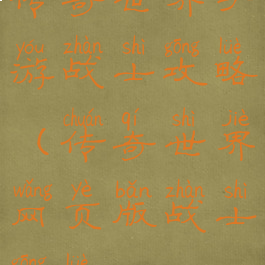 yóu zhàn shì gōng lüè
游战士攻略
chuán qí shì jiè
《传奇世界
wǎng yè bǎn zhàn shì
网页版战士